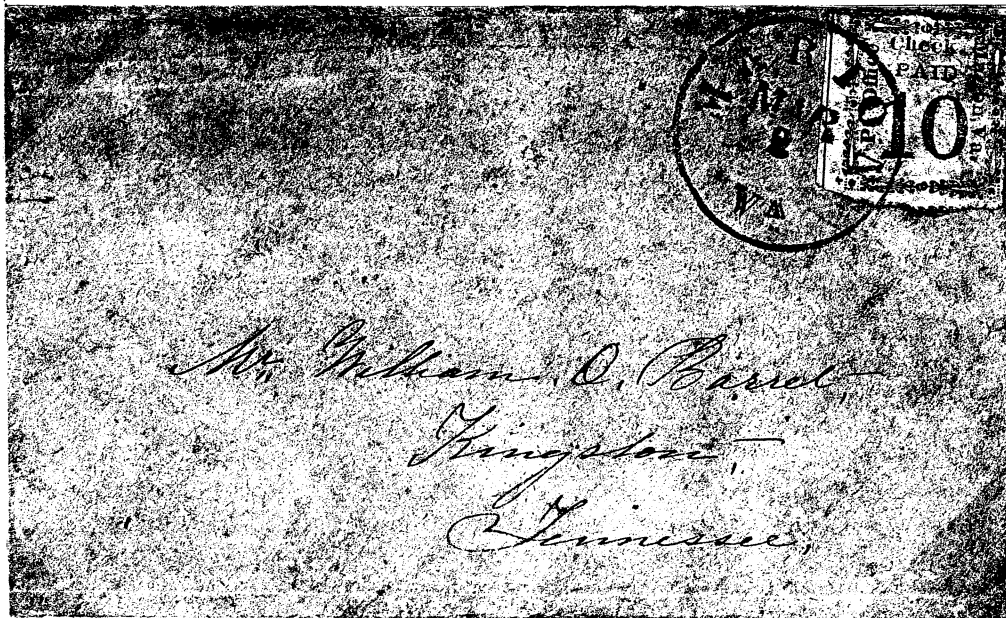 MARION
VA
Check
PAID
10
P. Office
Mr. William O. Barrel,
Kingston,
Tennessee,